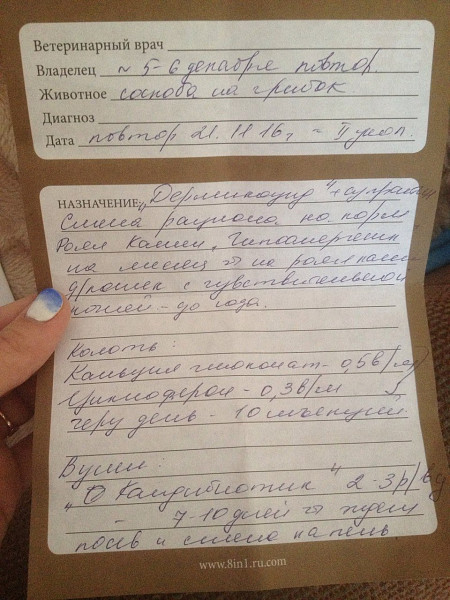 Ветеринарный врач
Владелец ~ 5-6 декабря повтор.
Животное соскоба на грибок
Диагноз
Дата повтор 21.11 16г - II укол.
НАЗНАЧЕНИЕ "Дермикоцид" +
Смена рациона на корм
Роял Канин "Гипоаллергеник
на месяц на роял канин
д/кошек с чувствительной
кожей - до года.
Колоть:
Кальция глюконат - 0,5 в/м
Циклоферон - 0,3 в/м
через день - 10 инъекций.
В уши:
"О Кандибиотик" 2-3 р/
- 7-10 дней ждем
посев и смена на
www.8in1.ru.com